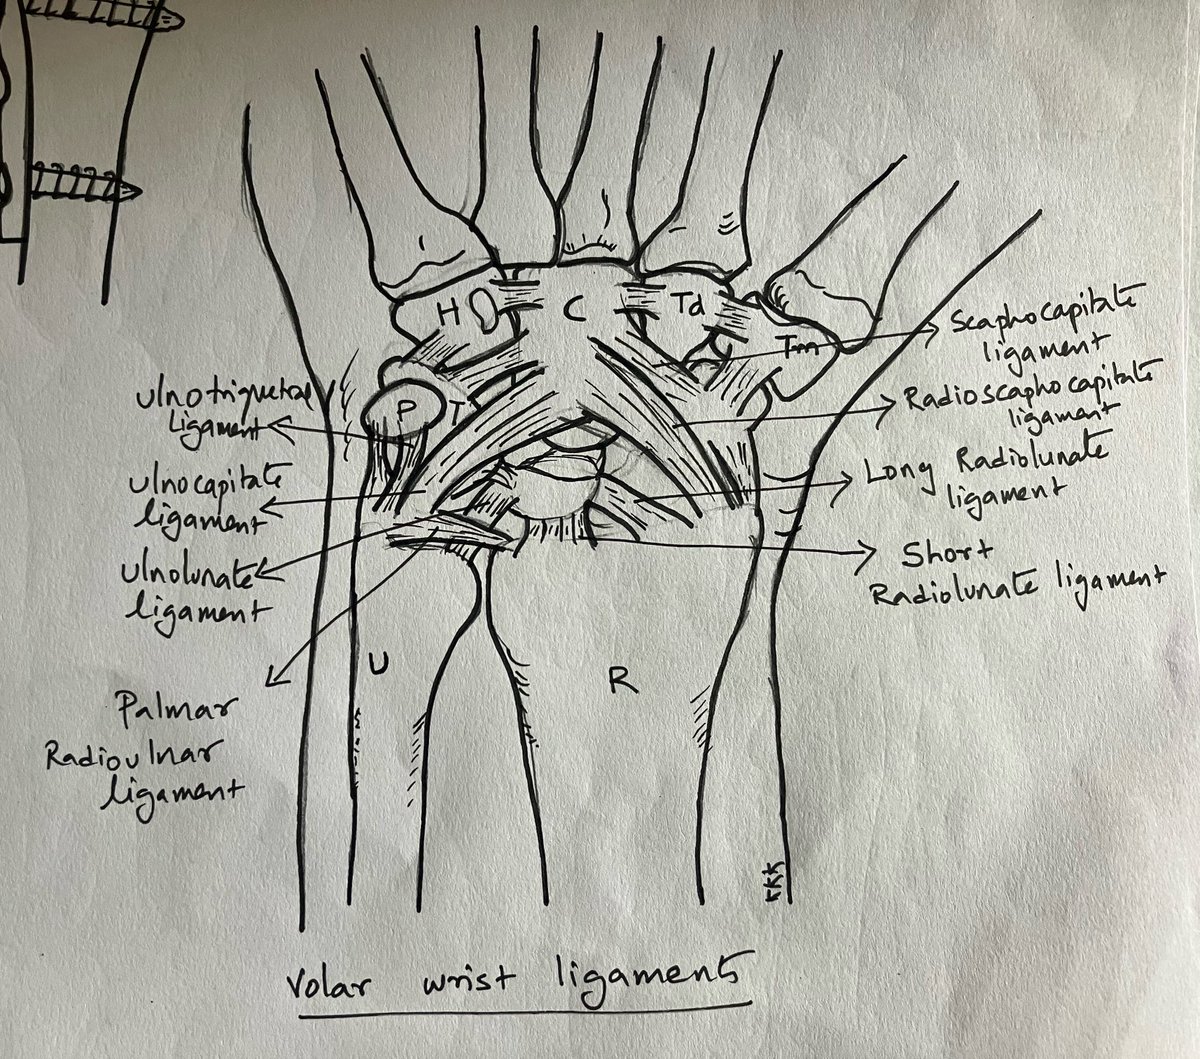 H
C
Td
Tm
P
T
Scaphocapitate
ligament
Radioscaphocapitate
ligament
Long Radiolunate
ligament
Short
Radiolunate ligament
Ulnotriquetral
Ligament
Ulnocapitate
ligament
Ulnolunate
ligament
Palmar
Radioulnar
ligament
U
R
KKK
Volar wrist ligaments